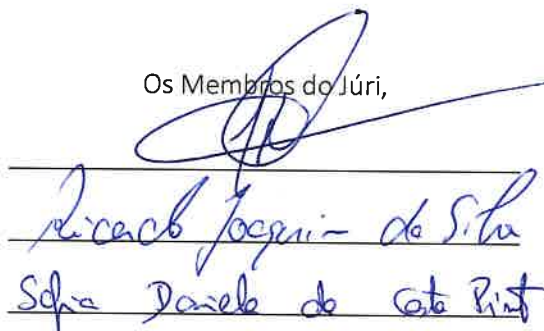 Os Membros do Júri,
Ricardo Joaquim da Silva
Sofia Daniela da Costa Pinto